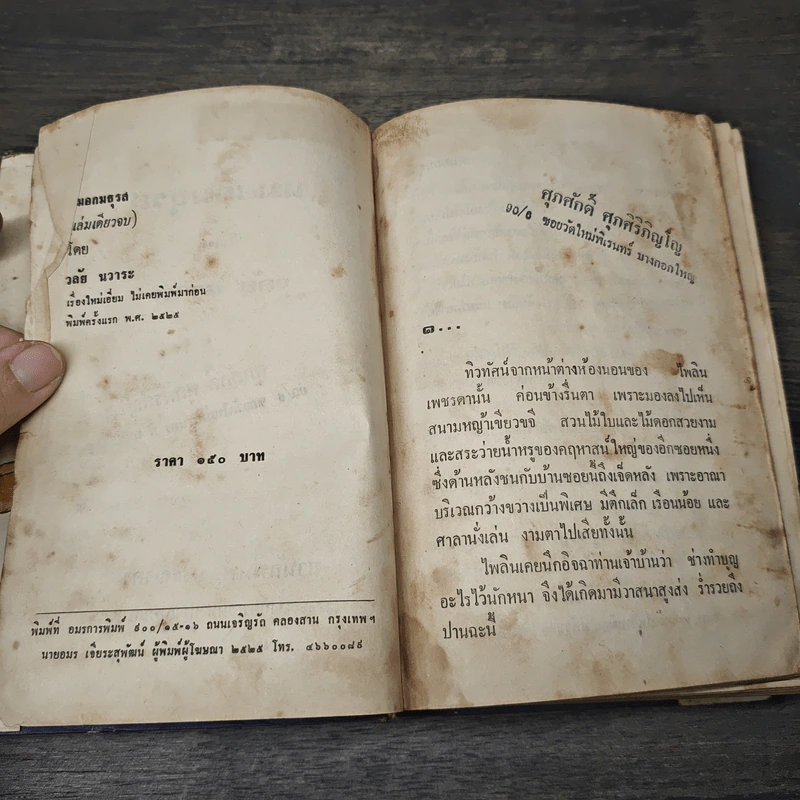 มอกมธุรส
(เล่มเดียวจบ)
โดย
วลัย นวาระ
เรื่องใหม่เอี่ยม ไม่เคยพิมพ์มาก่อน
พิมพ์ครั้งแรก พ.ศ. ๒๕๒๕
ราคา ๑๕๐ บาท
พิมพ์ที่ อมรการพิมพ์ ๙๐๐/๑๕-๑๖ ถนนเจริญรัถ คลองสาน กรุงเทพฯ
นายอมร เจียระสุพัฒน์ ผู้พิมพ์ผู้โฆษณา ๒๕๒๕ โทร. ๔๖๖๐๐๘๙
ศุภศักดิ์ ศุภศิริภิญโญ
ซอยวัดใหม่พิเรนทร์ บางกอกใหญ่
๑...
ทิวทัศน์จากหน้าต่างห้องนอนของ ไพลิน
เพชรดานั้น ค่อนข้างรื่นตา เพราะมองลงไปเห็น
สนามหญ้าเขียวขจี สวนไม้ใบและไม้ดอกสวยงาม
และสระว่ายน้ำหรูของคฤหาสน์ใหญ่ของอีกซอยหนึ่ง
ซึ่งด้านหลังชนกับบ้านซอยนี้ถึงเจ็ดหลัง เพราะอาณา
บริเวณกว้างขวางเป็นพิเศษ มีตึกเล็ก เรือนน้อย และ
ศาลานั่งเล่น งามตาไปเสียทั้งนั้น
ไพลินเคยนึกอิจฉาท่านเจ้าบ้านว่า ช่างทำบุญ
อะไรไว้นักหนา จึงได้เกิดมามีวาสนาสูงส่ง ร่ำรวยถึง
ปานฉะนี้